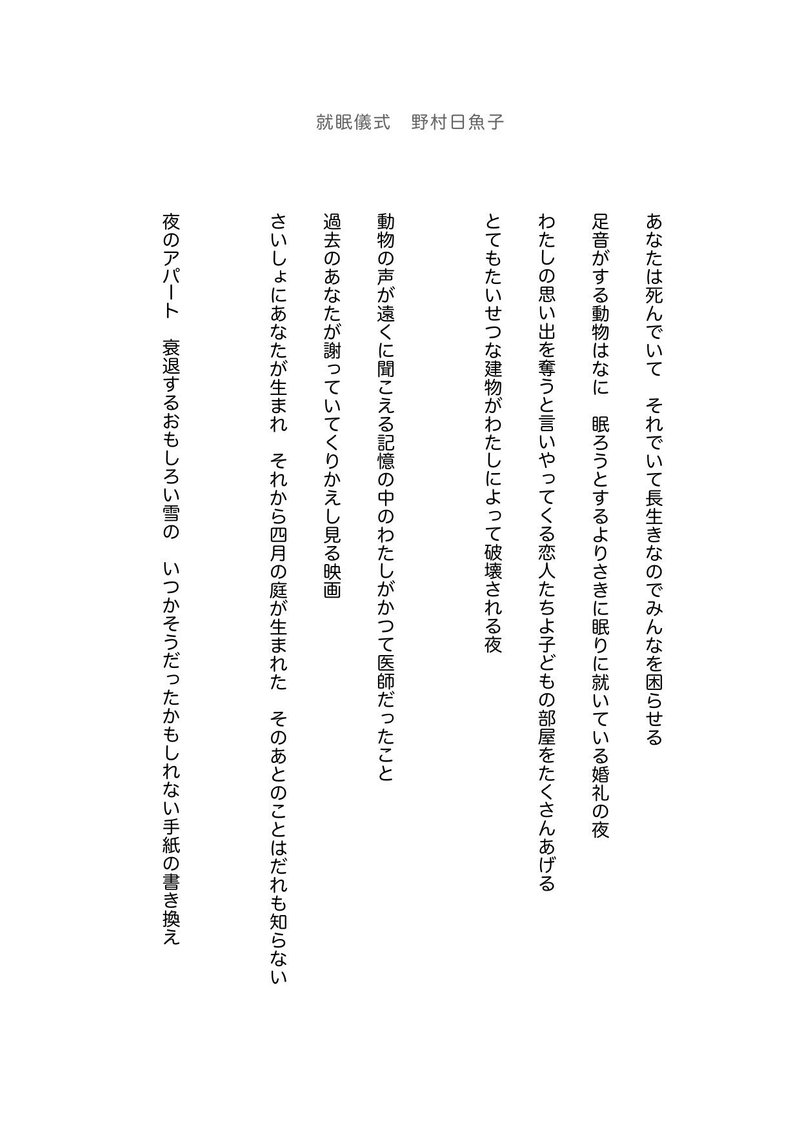 就眠儀式　野村日魚子
あなたは死んでいて　それでいて長生きなのでみんなを困らせる
足音がする動物はなに　眠ろうとするよりさきに眠りに就いている婚礼の夜
わたしの思い出を奪うと言いやってくる恋人たちよ子どもの部屋をたくさんあげる
とてもたいせつな建物がわたしによって破壊される夜
動物の声が遠くに聞こえる記憶の中のわたしがかつて医師だったこと
過去のあなたが謝っていてくりかえし見る映画
さいしょにあなたが生まれ　それから四月の庭が生まれた　そのあとのことはだれも知らない
夜のアパート　衰退するおもしろい雪の　いつかそうだったかもしれない手紙の書き換え